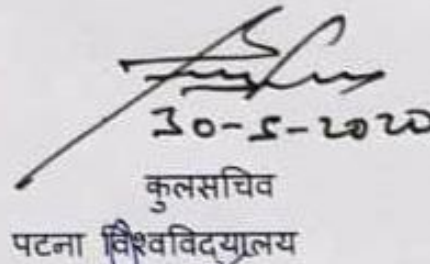 30-5-2020
कुलसचिव
पटना विश्वविद्यालय